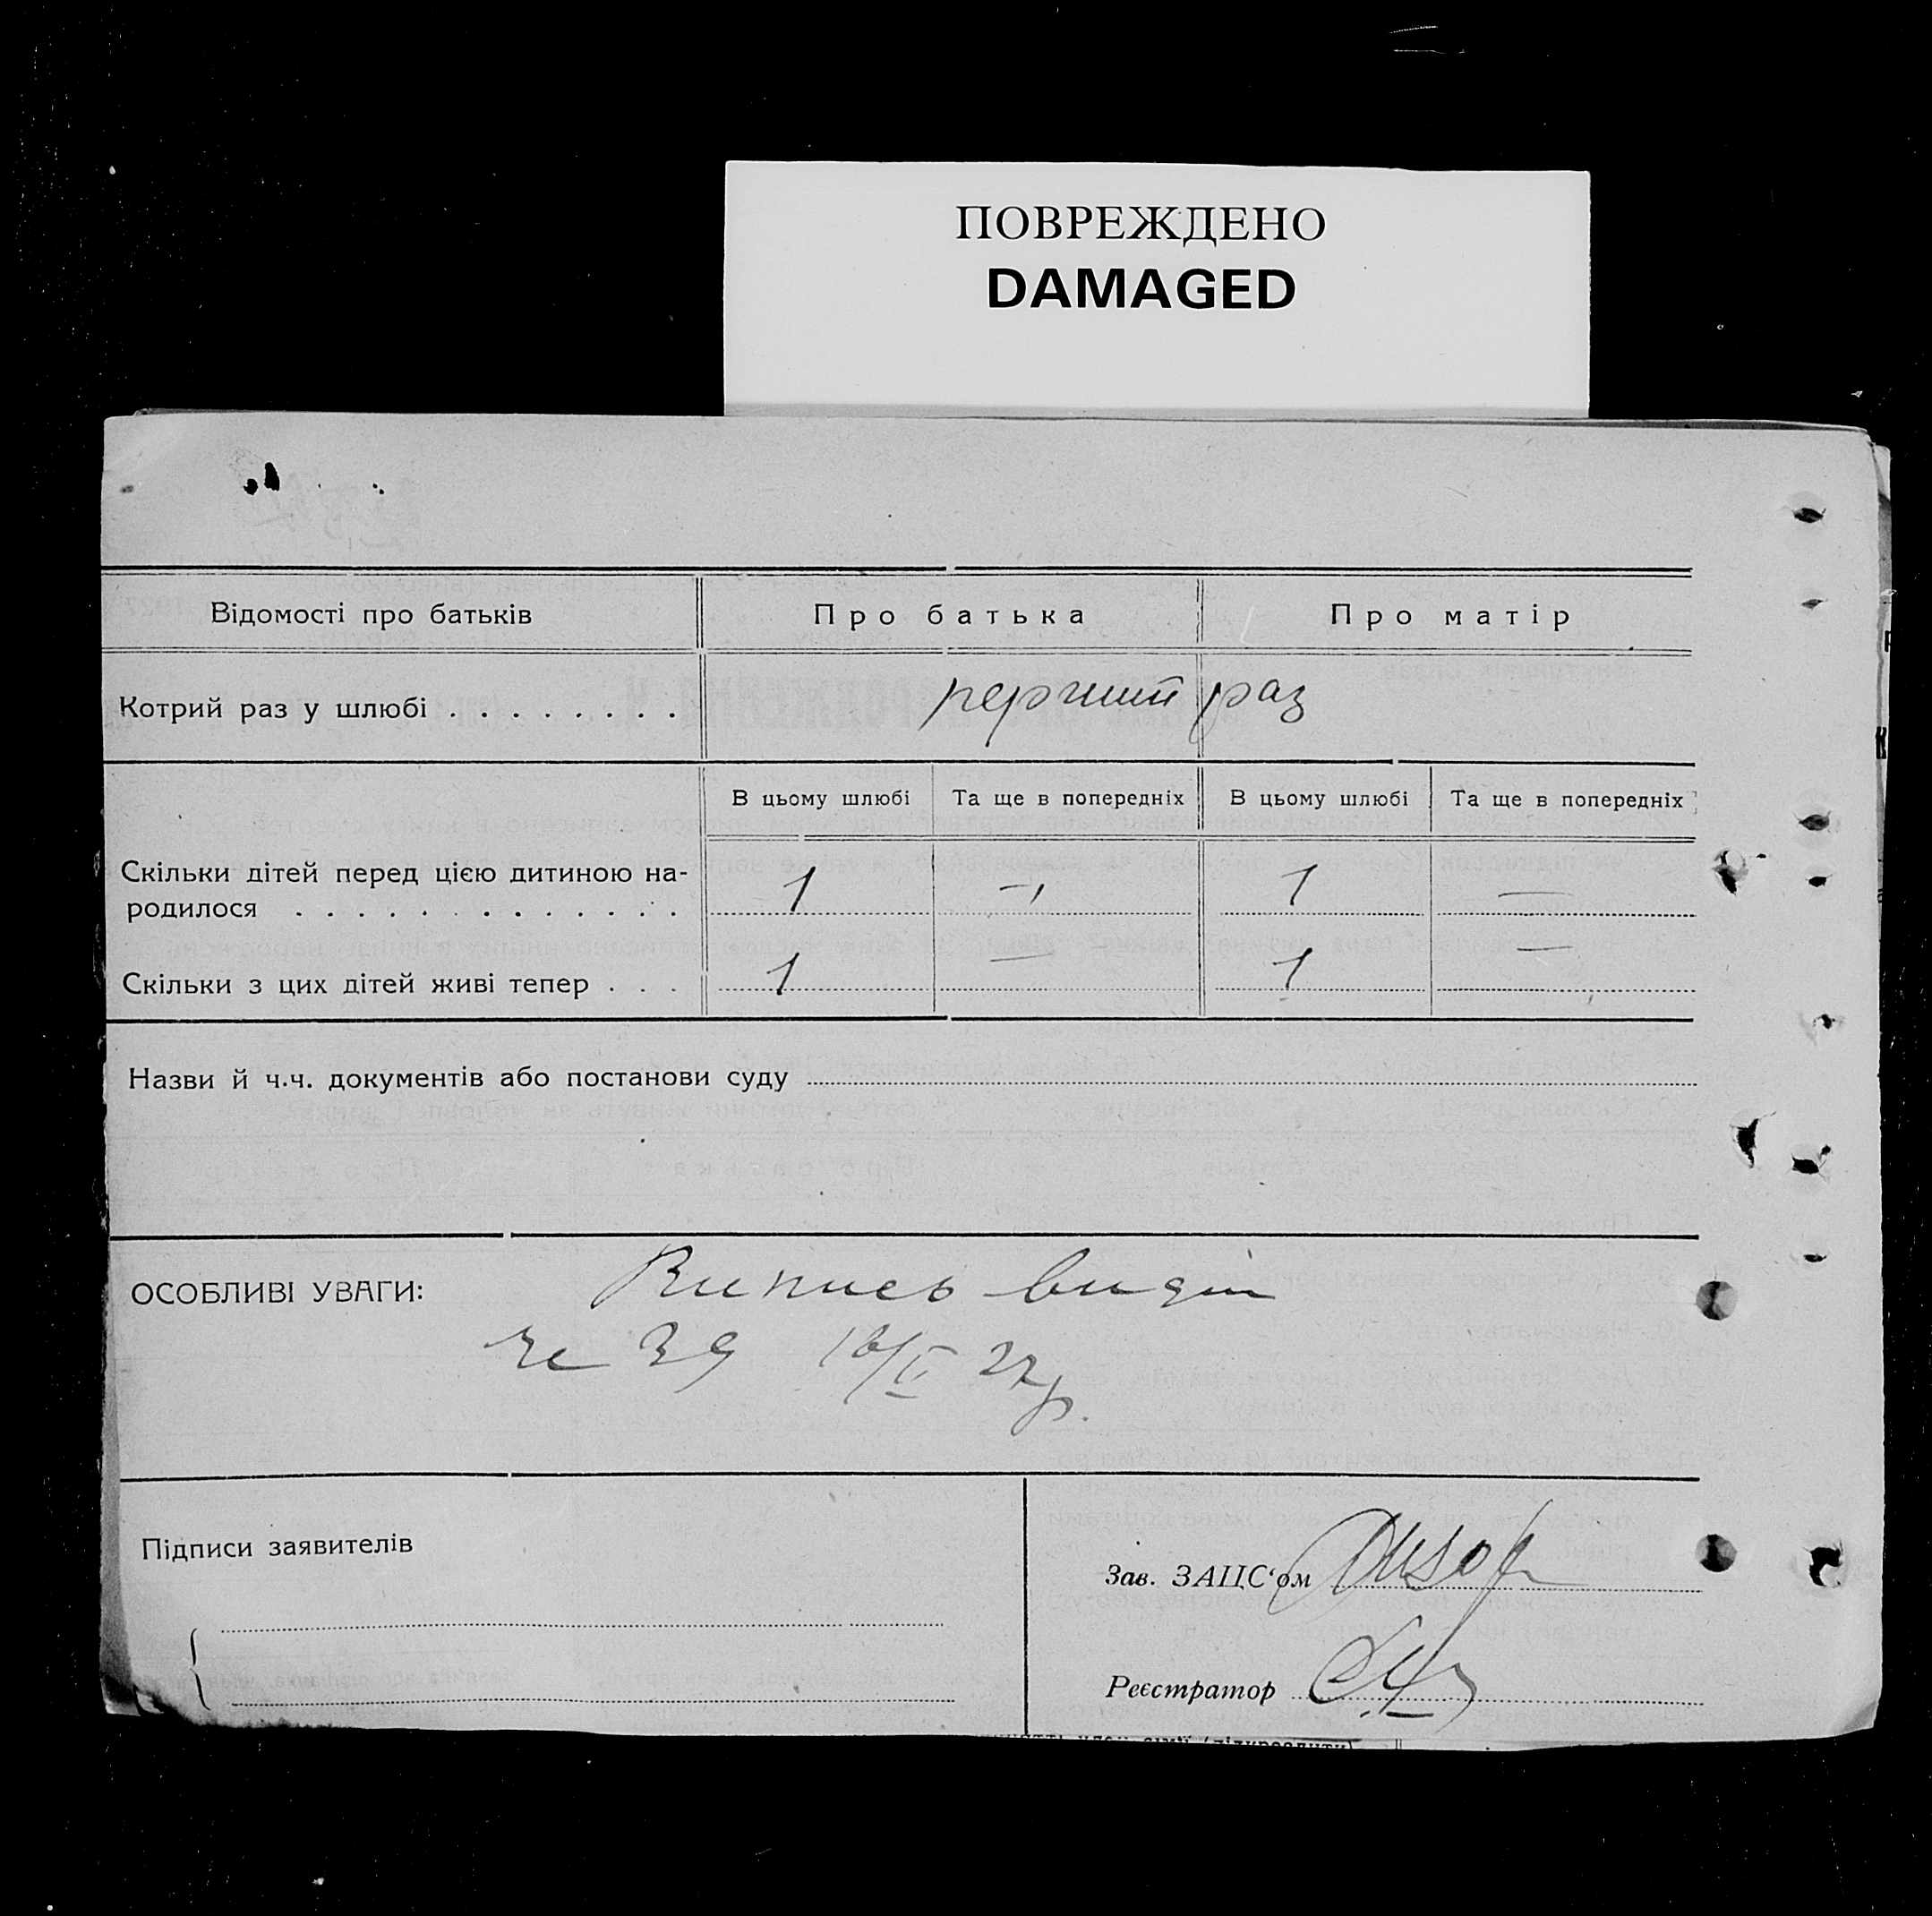 ПОВРЕЖДЕНО
DAMAGED
Відомості про батьків Про батька Про матір
Котрий раз у шлюбі . . . . . . . . перший раз
В цьому шлюбі Та ще в попередніх В цьому шлюбі Та ще в попередніх
Скільки дітей перед цією дитиною на-
родилося . . . . . . . . . . . . . 1 — 1 —
Скільки з цих дітей живі тепер . . . 1 — 1 —
Назви й ч.ч. документів або постанови суду
ОСОБЛИВІ УВАГИ: Випись видан
39 16/V 27р.
Підписи заявителів
Зав. ЗАЦС‘ом
Реєстратор